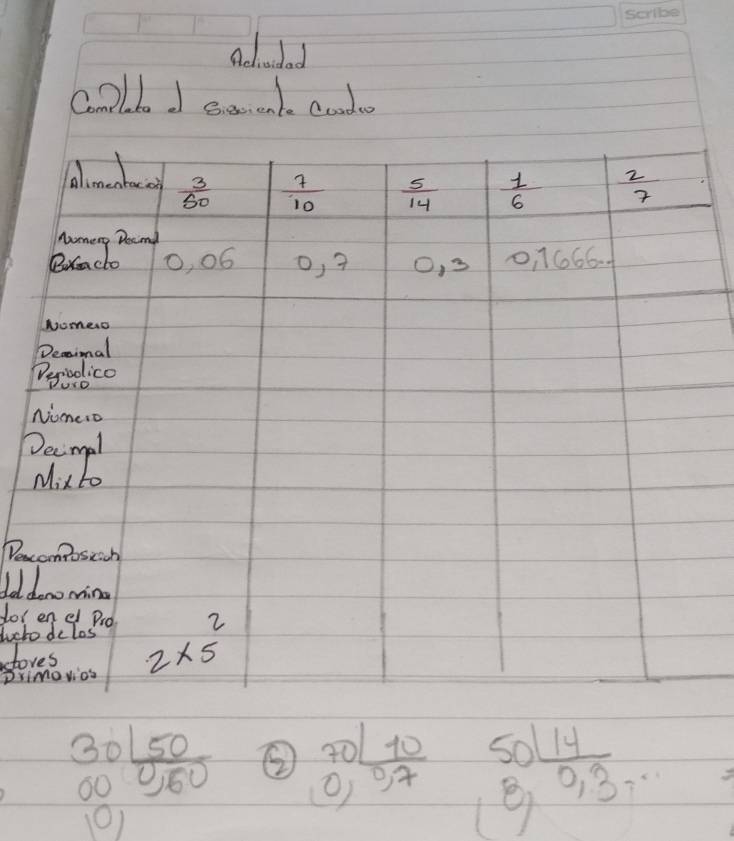 Scribe
Actividad
Completa el siguiente Cuadro
Alimentacion 3/50 7/10 5/14 1/6 2/7
Numero Decimal
Exacto 0,06 0,7 0,3 0,1666...
Numero
Decimal
Periodico
Puro
Número
Decimal
Mixto
Descomposicion
del denomina
dor en el Pro
ducto de los
ctores 2x5²
primarios
30 50 ② 70 10 50 14
00 0,60 0, 0,7 8, 0,3...
0,